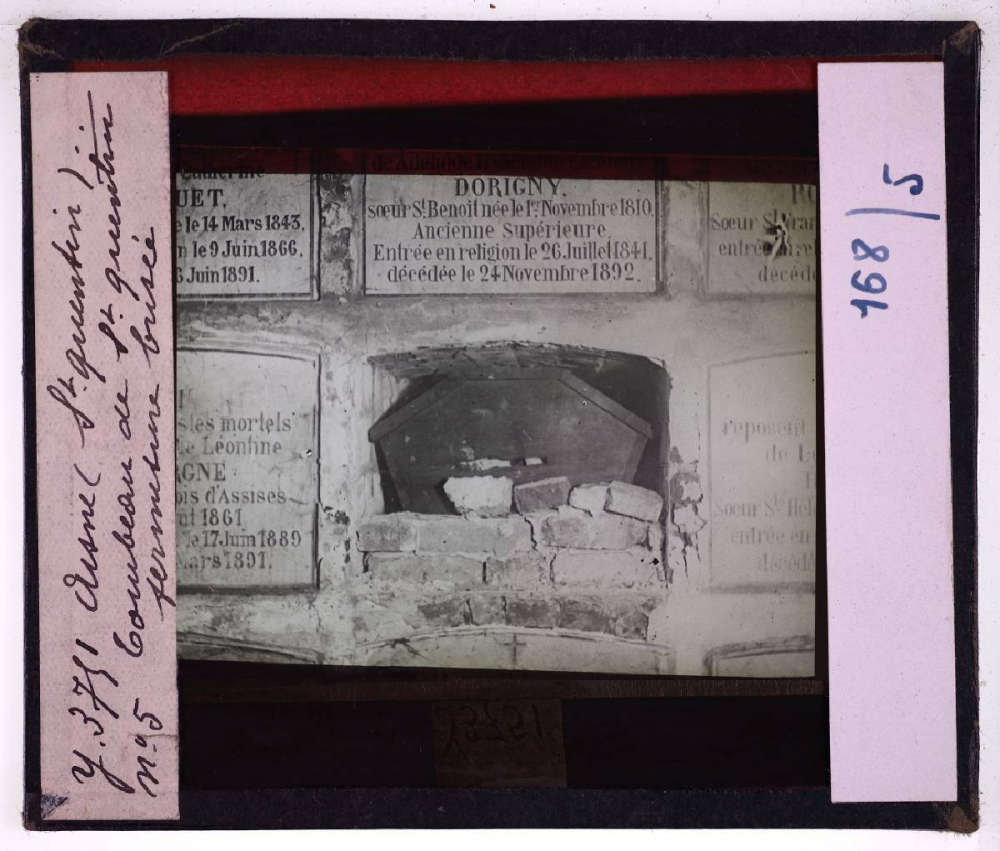 Y.3751 Aisne (St quentin) :
Tombeau de St quentin
n:95 fermeture brisée
UET.
e le 14 Mars 1843.
n le 9 Juin 1866.
Juin 1891.
de Adelaide
DORIGNY.
sœur St Benoit née le 1er Novembre 1810.
Ancienne Supérieure.
Entrée en religion le 26 Juillet 1841.
décédée le 24 Novembre 1892.
Sœur St
entrée
décéd
stes mortels
ie Léontine
GNE
ois d'Assises
1861
le 17 Juin 1889
Mars 1891.
reposent
de
Sœur Ste Hel
entrée en
décéd
168/5